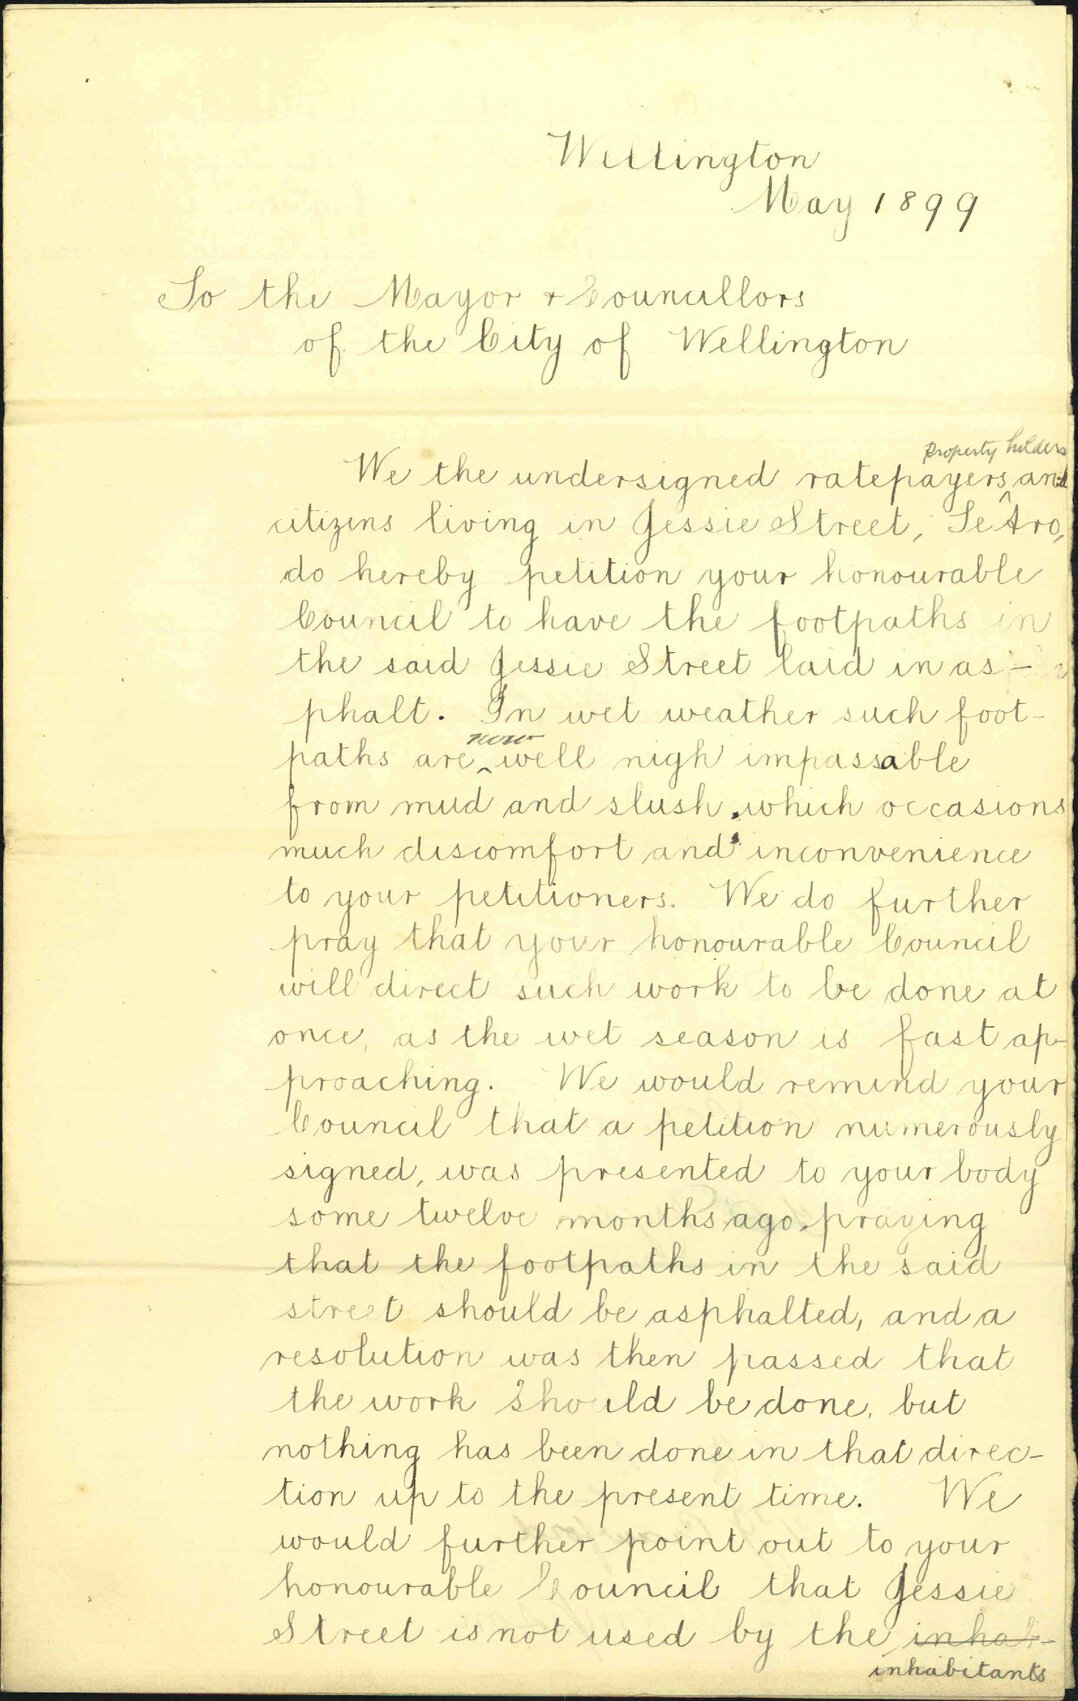 Wellington
May 1899
To the Mayor & Councillors
of the City of Wellington
Property holders
We the undersigned ratepayers ^ and
citizens living in Jessie Street, Te Aro,
do hereby petition your honourable
Council to have the footpaths in
the said Jessie Street laid in as-
phalt. In wet weather such foot-
now
paths are ^ well nigh impassable
from mud and slush, which occasions
much discomfort and inconvenience
to your petitioners. We do further
pray that your honourable Council
will direct such work to be done at
once, as the wet season is fast ap-
proaching. We would remind your
Council that a petition numerously
signed, was presented to your body
some twelve months ago, praying
that the footpaths in the said
street should be asphalted, and a
resolution was then passed that
the work should be done, but
nothing has been done in that direc-
tion up to the present time. We
would further point out to your
honourable Council that Jessie
Street is not used by the inhab-
inhabitants